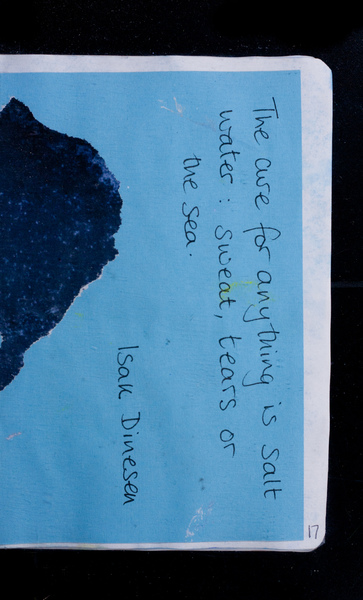 The cure for anything is salt
water: sweat, tears or
the sea.
Isak Dinesen
17